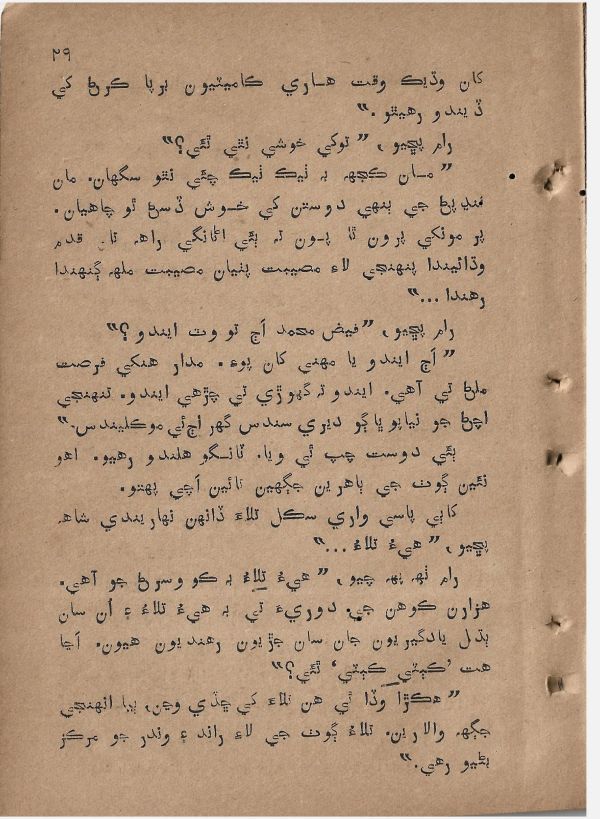 ٢٩
کان وڌيڪ وقت هاري ڪاميٽيون برپا ڪرڻ کي
ڏيندو رهيٿو."
رام پڇيو، "توکي خوشي نٿي ٿئي؟"
"مان ڪجهہ بہ ٺيڪ ٺيڪ چئي نٿو سگهان. مان
ننڍپڻ جي ٻنهي دوستن کي خوش ڏسڻ ٿو چاهيان.
پر مونکي پرون ٿا پون تہ ٻئي اڻانگي راهہ تان قدم
وڌائيندا پنهنجي لاءِ مصيبت پٺيان مصيبت ملهہ ڳنهندا
رهندا..."
رام پڇيو، "فيض محمد اڄ تو وٽ ايندو؟"
"اڄ ايندو يا مهني کان پوءِ. مدار هنکي فرصت
ملڻ تي آهي. ايندو تہ گهوڙي تي چڙهي ايندو. تنهنجي
اچڻ جو نياپو ڀاڳو ديري سندس گهر اڄ ئي موڪليندس."
ٻئي دوست چپ ٿي ويا. ٽانگو هلندو رهيو. اهو
نئين ڳوٺ جي ٻاهرين جڳهين تائين اچي پهتو.
کاٻي پاسي واري سڪل تلاءَ ڏانهن نهاريندي شاهہ
پڇيو، "هيءُ تلاءُ..."
رام ٺهہ پهہ چيو، "هيءُ تلاءُ بہ ڪو وسرڻ جو آهي.
هزارن ڪوهن جي دوريءَ تي بہ هيءُ تلاءُ ۽ اُن سان
ٻڌل يادگيريون جان سان جڙيون رهنديون هيون. اڃا
هت 'ڪٻٽي ڪٻٽي' ٿئي؟"
"هڪڙا وڏا ٿي هن تلاءَ کي ڇڏي وڃن، ٻيا انهنجي
جڳهہ والارين. تلاءُ ڳوٺ جي لاءِ راند ۽ وندر جو مرڪز
بڻيو رهي."